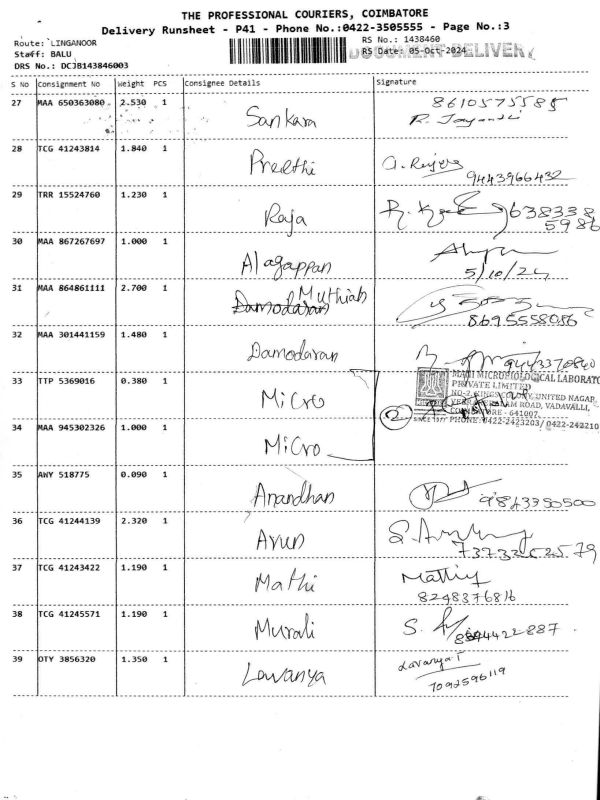 THE PROFESSIONAL COURIERS, COIMBATORE
Delivery Runsheet - P41 - Phone No.:0422-3505555 - Page No.:3
Route: LINGANOOR
Staff: BALU
DRS No.: DCJB143846003
RS No.: 1438460
RS Date: 05-Oct-2024
DOCUMENT DELIVERY
S No Consignment No Weight PCS Consignee Details Signature
27 MAA 650363080 2.530 1 Sankara 8610575585
R. Jayanthi
28 TCG 41243814 1.840 1 Preethi
9443966432
29 TRR 15524760 1.230 1 Raja 9638338
5986
30 MAA 867267697 1.000 1 Alagappan
5/10/24
31 MAA 864861111 2.700 1 Damodaran Muthiah
8695558086
32 MAA 301441159 1.480 1 Damodaran 9443370840
33 TTP 5369016 0.380 1 Micro
MICROBIOLOGICAL LABORATO
PRIVATE LIMITED
UNITED NAGAR,
ROAD, VADAVALLI,
COIMBATORE - 641007.
SINCE 1977 PHONE: 0422-2423203/ 0422-242210
2
34 MAA 945302326 1.000 1 Micro
35 AWY 518775 0.090 1 Anandhan 9843350500
36 TCG 41244139 2.320 1 Arun
37 TCG 41243422 1.190 1 Mathi Mathi
8248376816
38 TCG 41245571 1.190 1 Murali S.
422887
39 OTY 3856320 1.350 1 Lavanya Lavanya T
7092596119